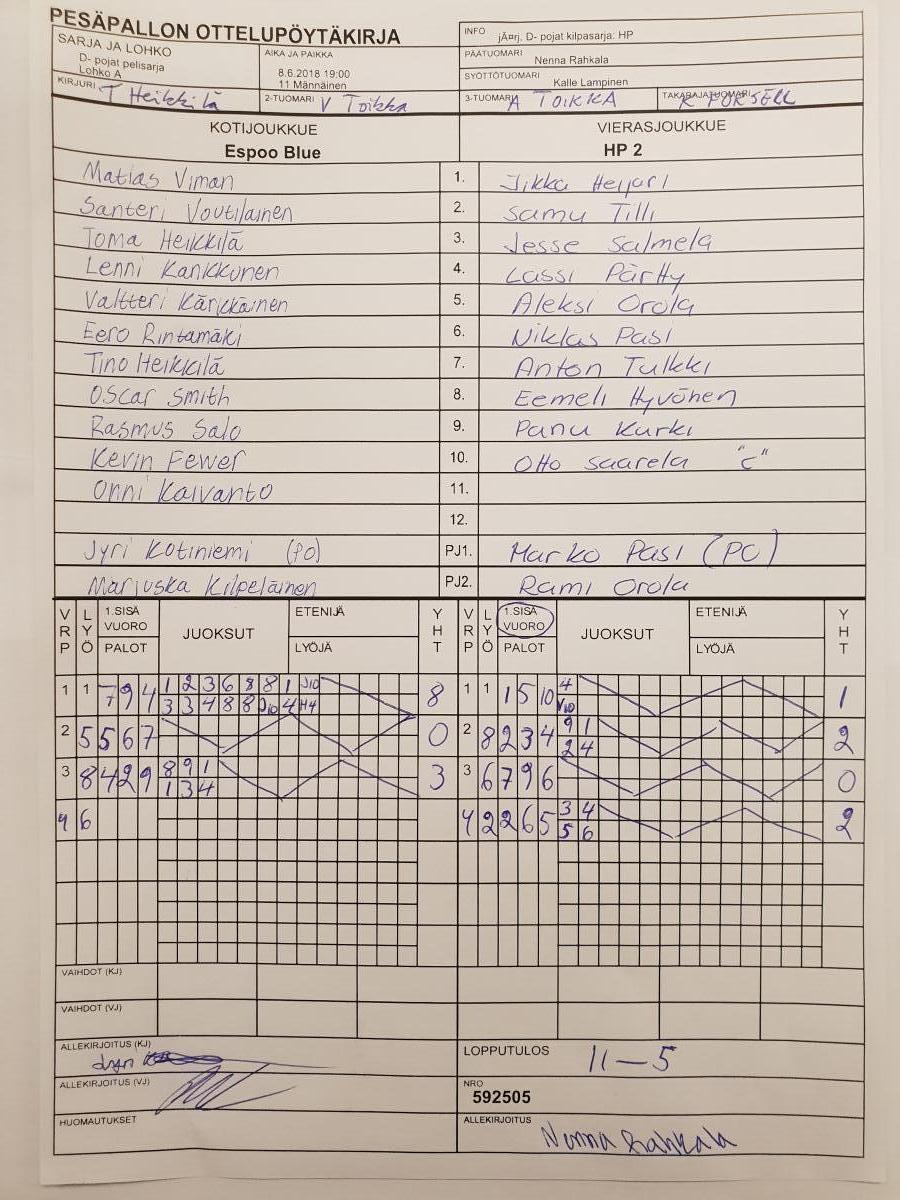 PESÄPALLON OTTELUPÖYTÄKIRJA
INFO jÄ¤rj. D- pojat kilpasarja: HP
SARJA JA LOHKO
D- pojat pelisarja
Lohko A
AIKA JA PAIKKA
8.6.2018 19:00
11 Männäinen
PÄÄTUOMARI Nenna Rahkala
SYÖTTÖTUOMARI Kalle Lampinen
KIRJURI T Heikkilä
2-TUOMARI V Toikka
3-TUOMARI A TOIKKA
TAKARAJATUOMARI K FORSELL
KOTIJOUKKUE VIERASJOUKKUE
Espoo Blue HP 2
Matias Viman 1. Jikka Heijari
Santeri Voutilainen 2. Samu Tilli
Toma Heikkilä 3. Jesse Salmela
Lenni Kankkunen 4. Lassi Pärtty
Valtteri Kärkkäinen 5. Aleksi Orola
Eero Rintamäki 6. Niklas Pasi
Tino Heikkilä 7. Anton Tulkki
Oscar Smith 8. Eemeli Hyvönen
Rasmus Salo 9. Panu Kurki
Kevin Fewer 10. Otto Saarela "C"
Onni Kaivanto 11.
12.
Jyri Kotiniemi (PO) PJ1. Marko Pasi (PO)
Marjuska Kilpeläinen PJ2. Rami Orola
VRP LYÖ 1.SISÄ VUORO PALOT JUOKSUT ETENIJÄ LYÖJÄ YHT VRP LYÖ 1.SISÄ VUORO PALOT JUOKSUT ETENIJÄ LYÖJÄ YHT
1 1 7 9 4 1 2 3 6 8 8 1 J10 8 1 1 1 5 10 4 1
3 3 4 8 8 J10 4 H4 V10
2 5 5 6 7 0 2 8 2 3 4 9 1 2
2 4
3 8 4 2 9 8 9 1 3 3 6 7 9 6 0
1 3 4
4 6 4 2 2 6 5 3 4 2
5 6
VAIHDOT (KJ)
VAIHDOT (VJ)
ALLEKIRJOITUS (KJ) Jyri
LOPPUTULOS 11–5
ALLEKIRJOITUS (VJ)
NRO
592505
HUOMAUTUKSET
ALLEKIRJOITUS Nenna Rahkala